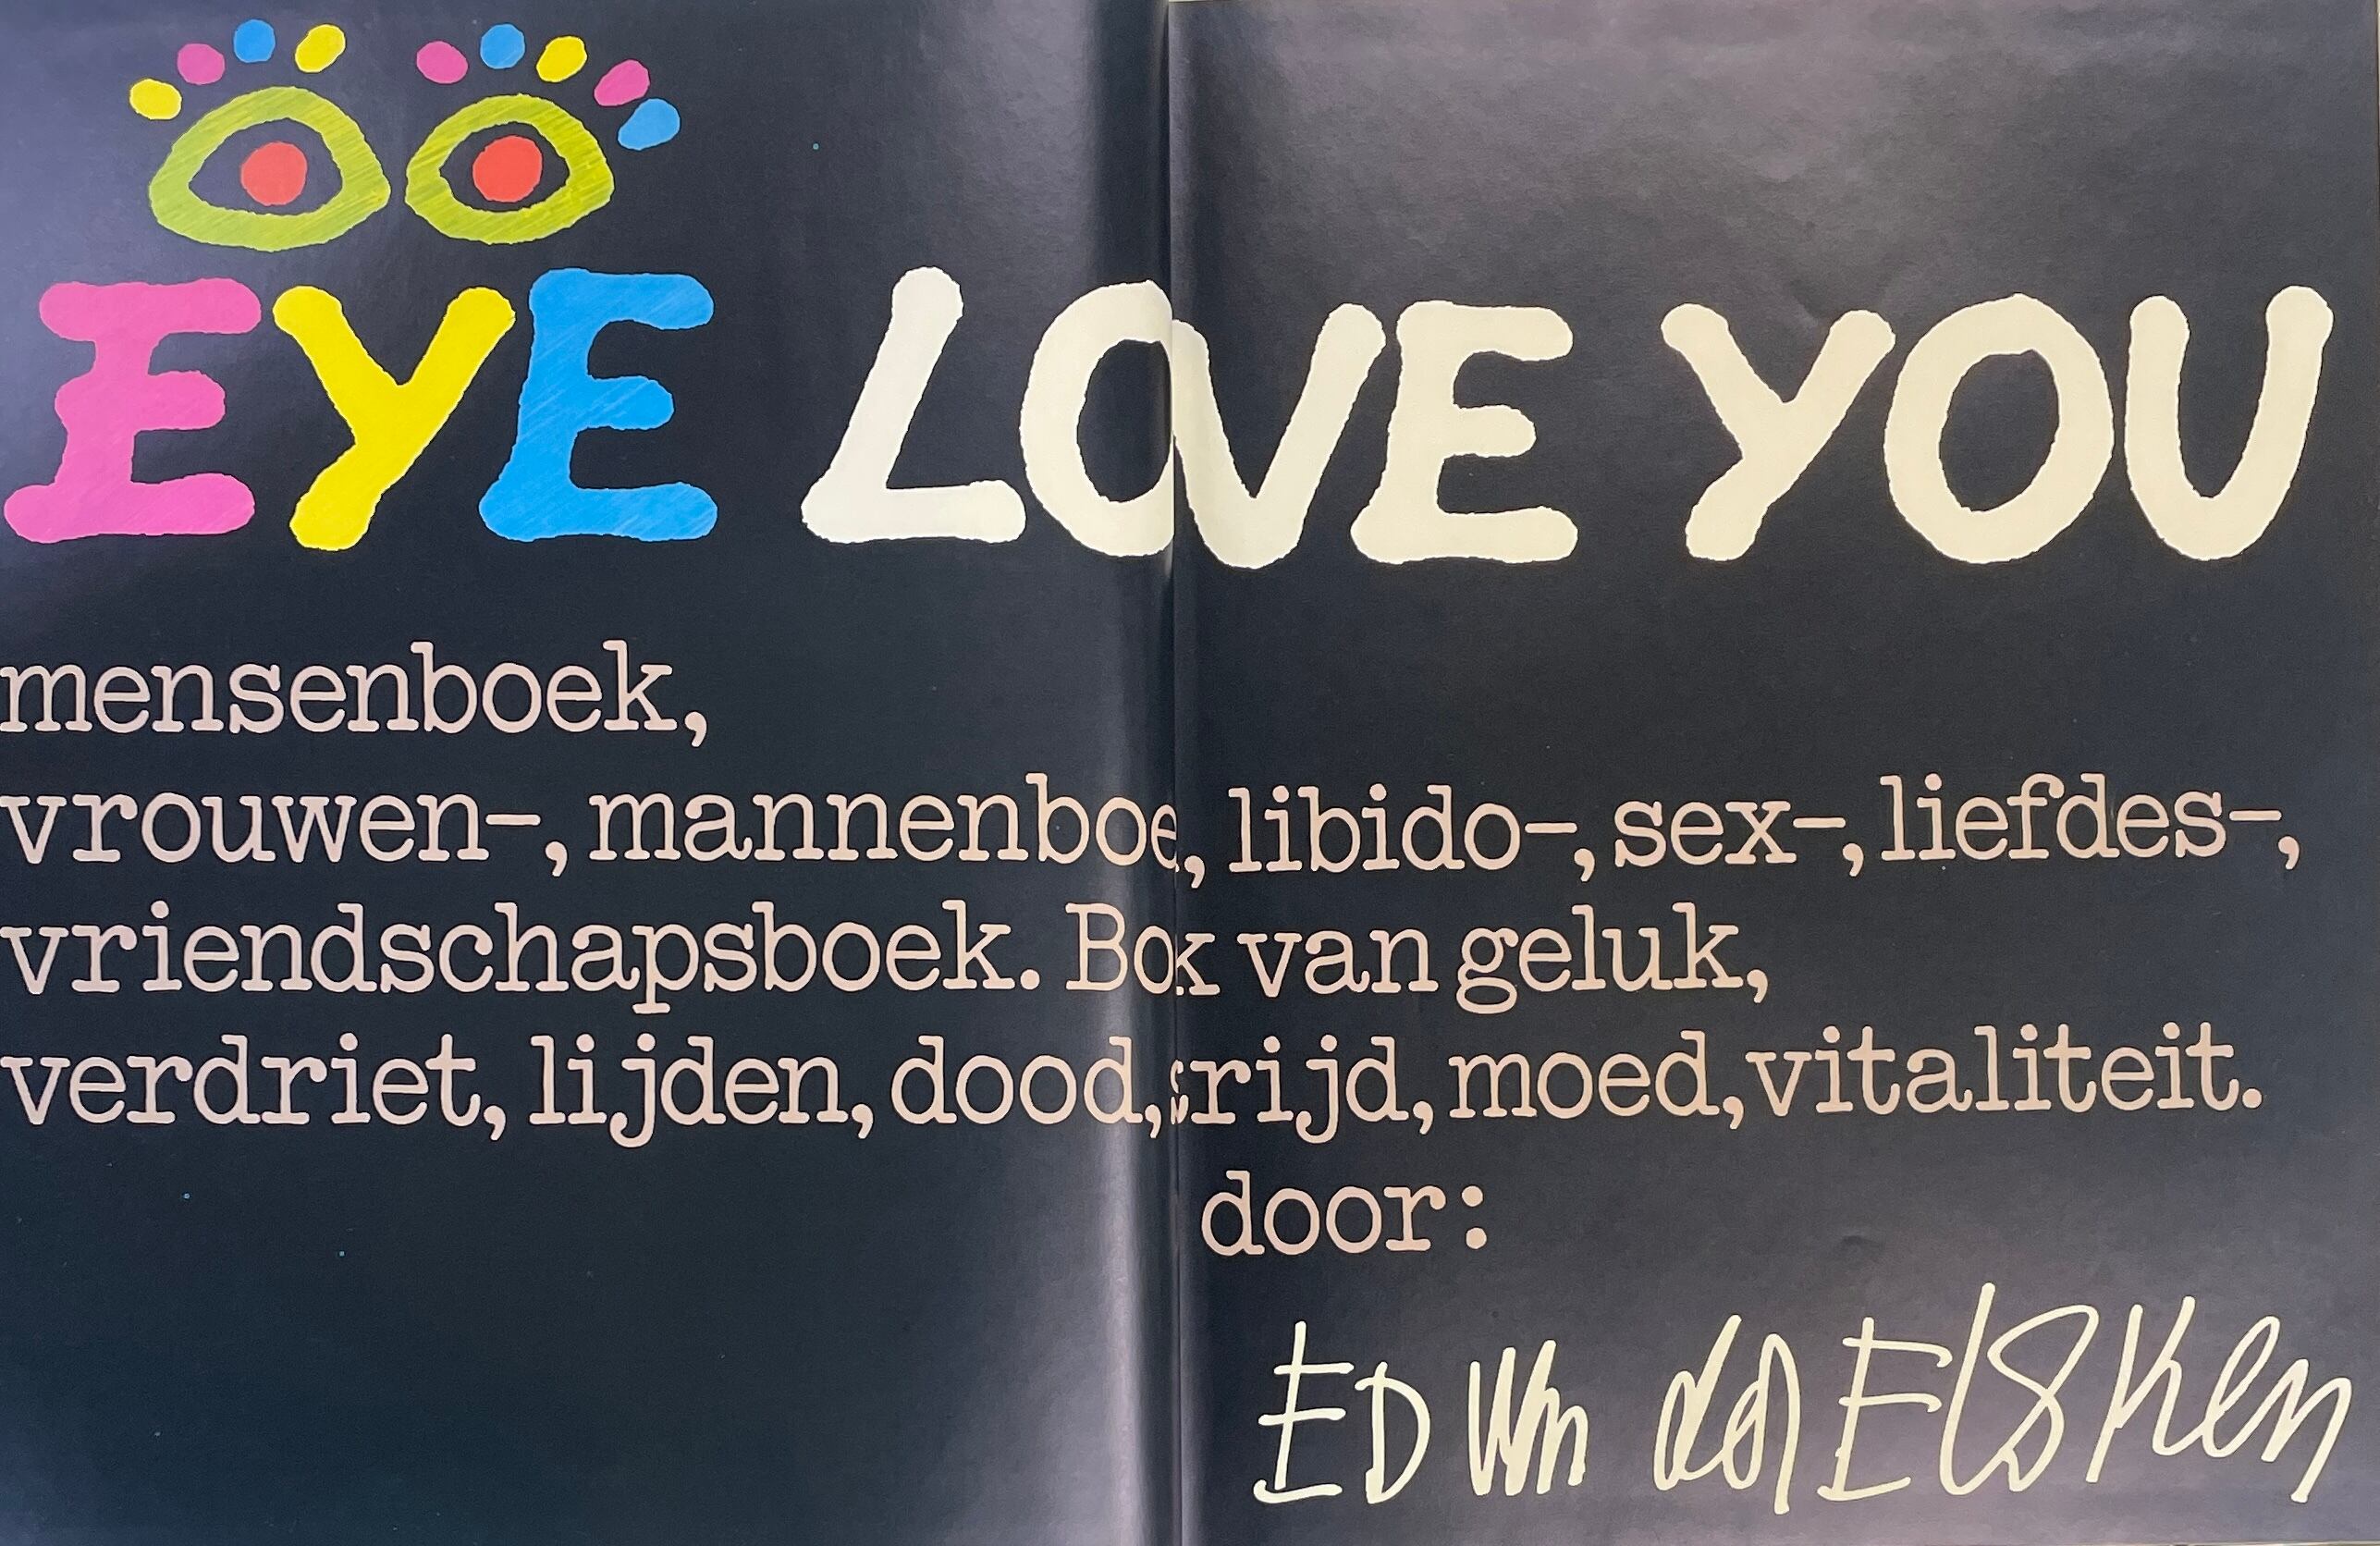 EYE LOVE YOU
mensenboek,
vrouwen-, mannenboe, libido-, sex-, liefdes-,
vriendschapsboek. Bok van geluk,
verdriet, lijden, dood, srijd, moed, vitaliteit.
door:
ED van der Elsken